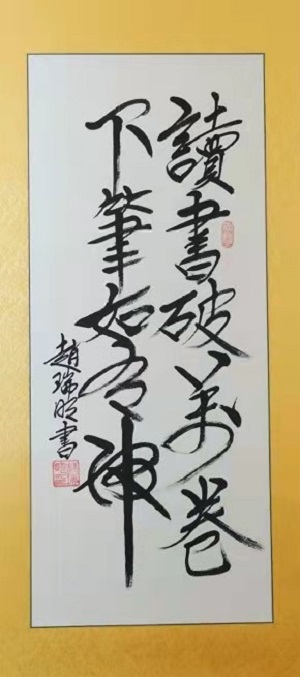 讀書破萬卷
下筆如有神
趙瑞昭書